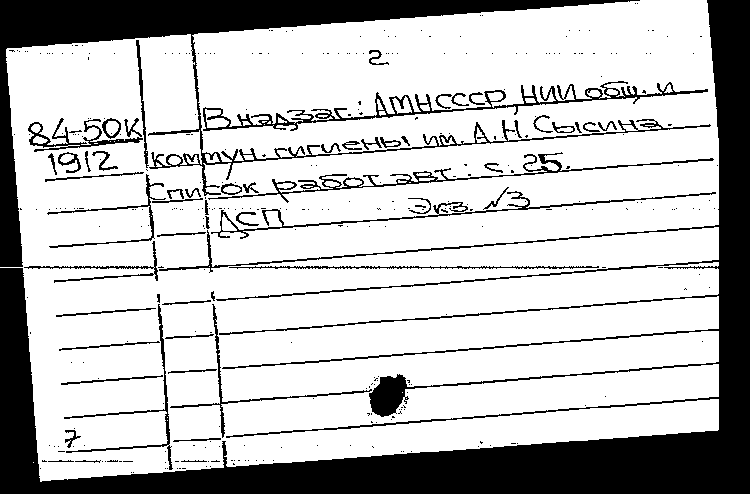 2
84-50К
1912
В надзаг.: АМНСССР, НИИ общ. и
коммун. гигиены им. А.Н. Сысина.
Список работ авт.: с. 25.
ДСП Экз. №3
7